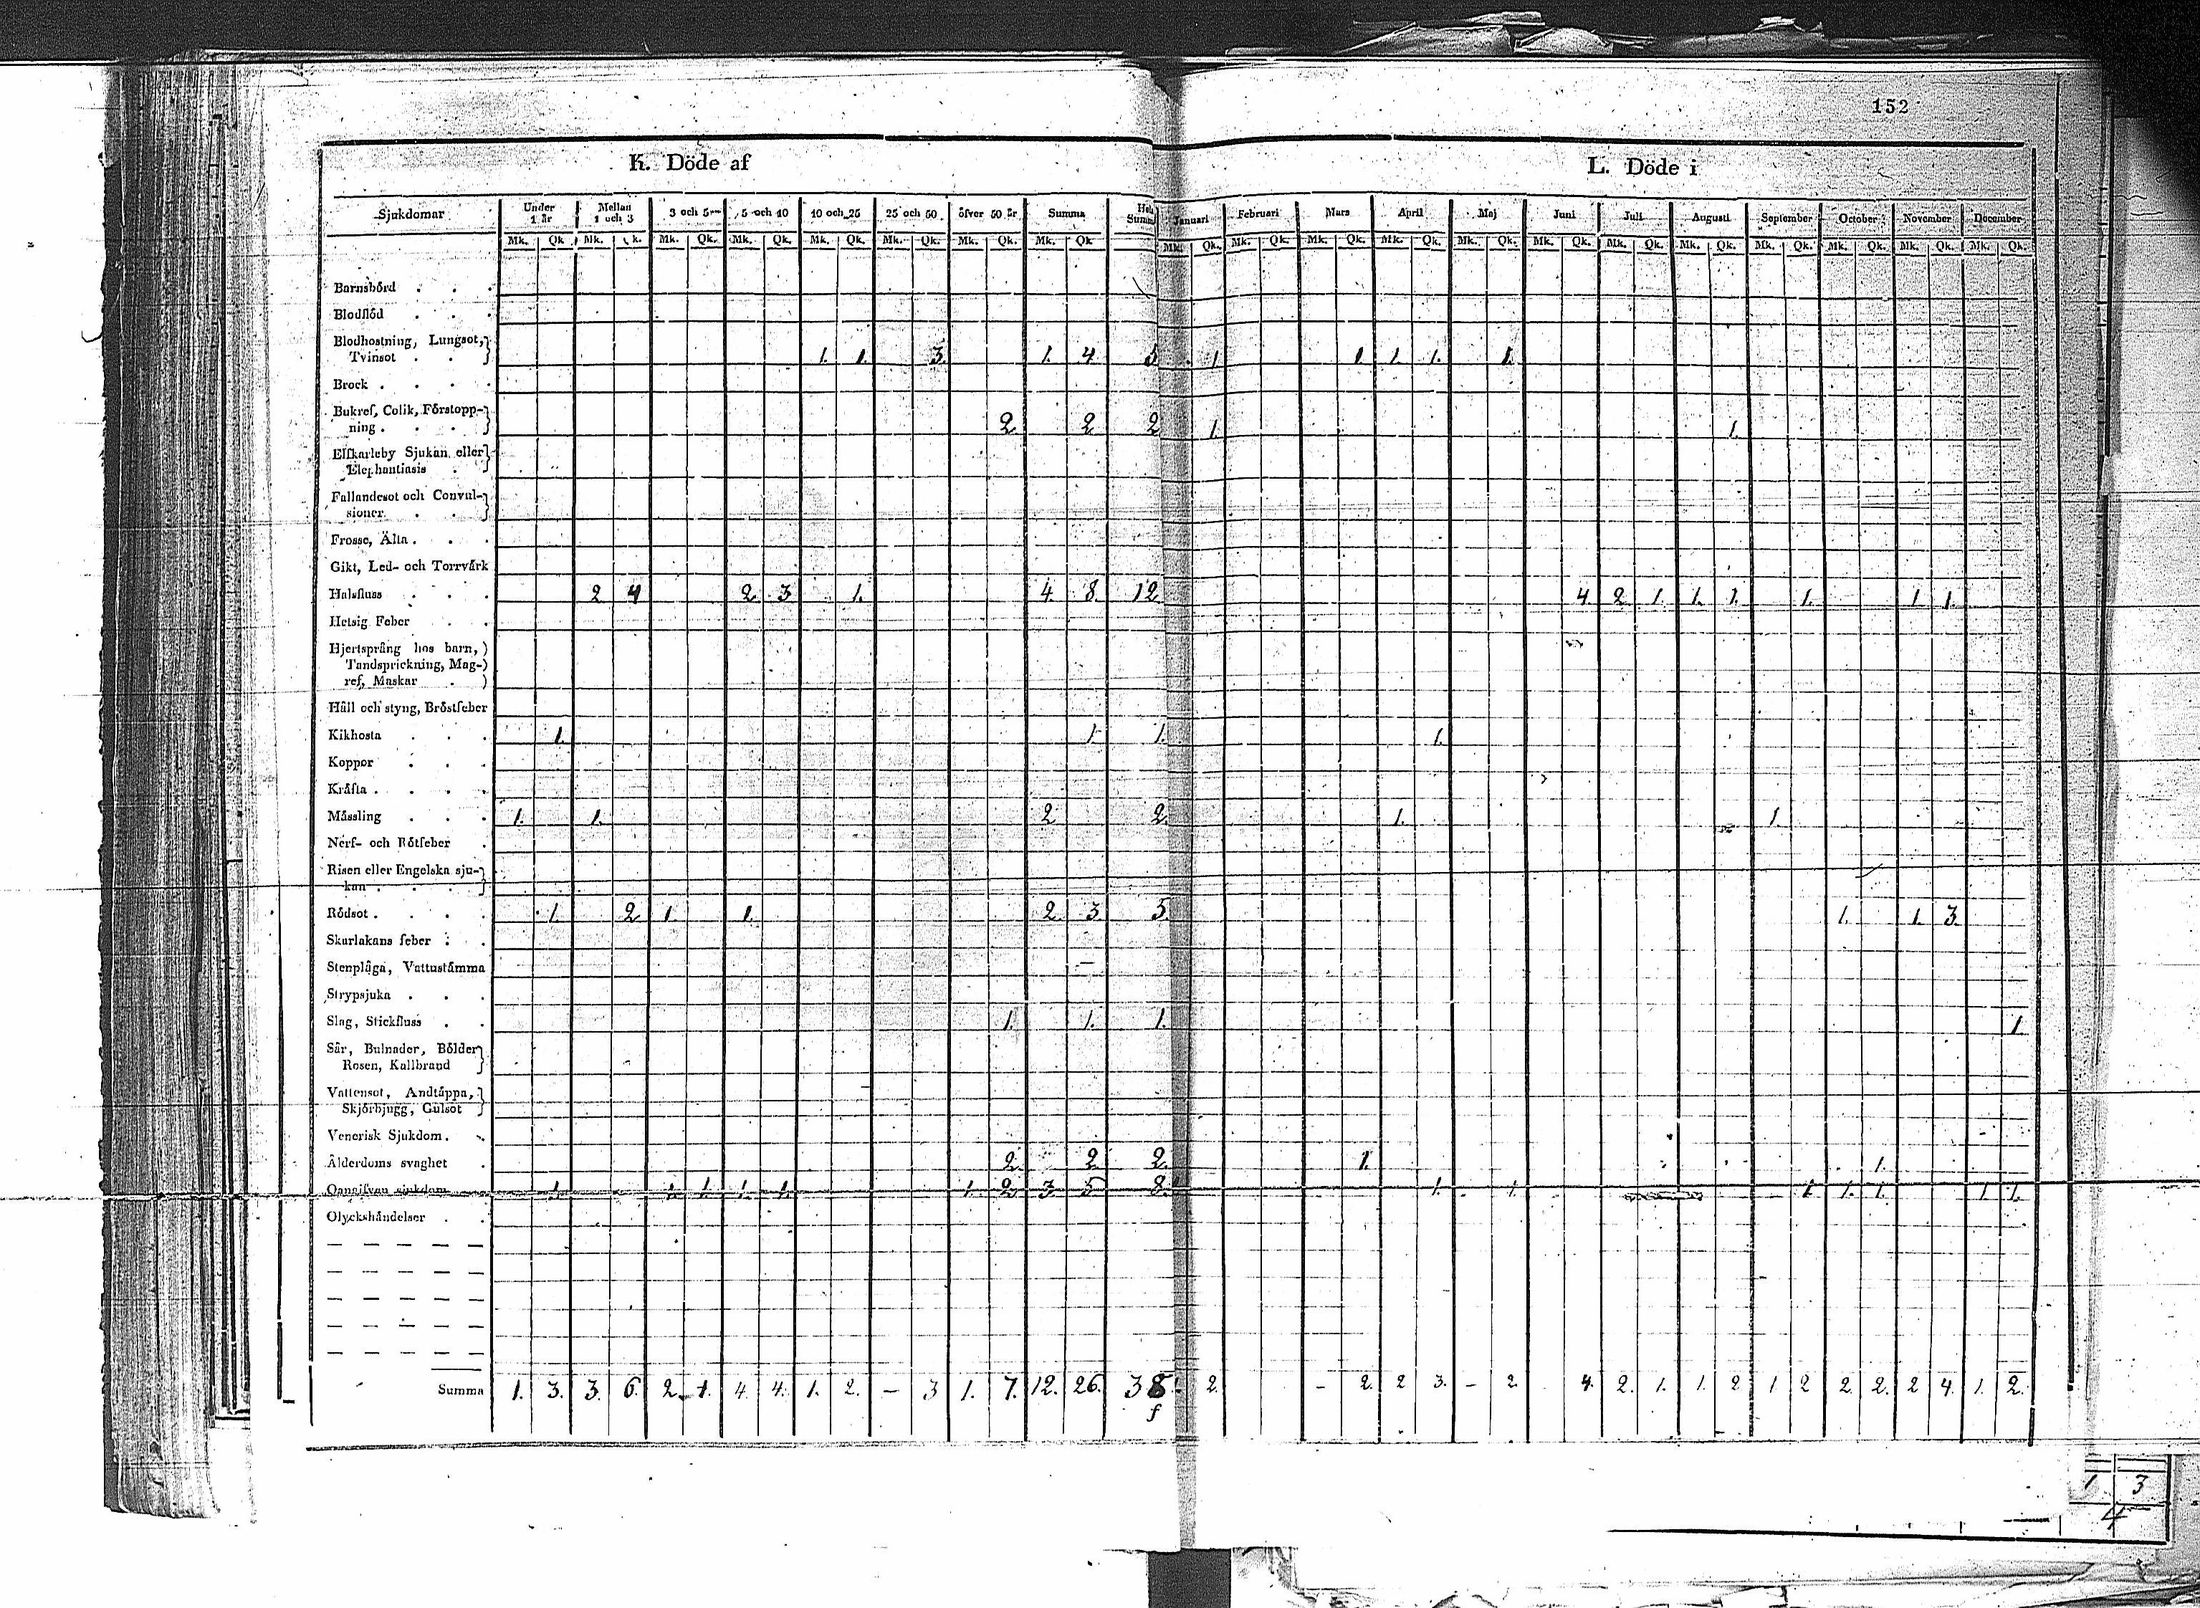 152
K. Döde af
L. Döde i
Sjukdomar Under 1 år Mellan 1 och 3 3 och 5 5 och 10 10 och 25 25 och 50 öfver 50 år Summa Hela Summa Januari Februari Mars April Maj Juni Juli Augusti September October November December
Mk. Qk. Mk. Qk. Mk. Qk. Mk. Qk. Mk. Qk. Mk. Qk. Mk. Qk. Mk. Qk. Mk. Qk. Mk. Qk. Mk. Qk. Mk. Qk. Mk. Qk. Mk. Qk. Mk. Qk. Mk. Qk. Mk. Qk. Mk. Qk. Mk. Qk. Mk. Qk.
Barnsbörd . . .
Blodflöd . . .
Blodhostning, Lungsot,
Tvinsot . . 1. 1. 3. 1. 4 5 1 1 1. 1. 1.
Brock . . . .
Bukref, Colik, Förstopp-
ning . . . 2 2 2 1. 1.
Elfkarleby Sjukan eller
Elephantiasis .
Fallandesot och Convul-
sioner . .
Frosse, Älta . . .
Gikt, Led- och Torrvärk
Halsfluss . . . 2 4 2 3 1. 4. 8. 12 4. 2 1. 1. 1. 1. 1 1.
Hetsig Feber . .
Hjertsprång hos barn,
Tandsprickning, Mag-
ref, Maskar .
Håll och styng, Bröstfeber
Kikhosta . . . 1. 1 1. 1.
Koppor . . .
Kräfta . . . .
Mässling . . . 1. 1. 2 2. 1. 1
Nerf- och Rötfeber .
Risen eller Engelska sju-
kan . . .
Rödsot . . . . 1. 2 1. 1. 2 3 5. 1. 1. 3.
Skarlakans feber . .
Stenplåga, Vattustämma
Strypsjuka . . .
Slag, Stickfluss . . 1. 1. 1. 1
Sår, Bulnader, Bölder
Rosen, Kallbrand
Vattensot, Andtäppa,
Skjörbjugg, Gulsot
Venerisk Sjukdom .
Ålderdoms svaghet . 2. 2. 2. 1. 1.
Oangifven sjukdom 1. 1. 1. 1. 1. 1. 2 3 5 8. 1. 1. 1. 1. 1. 1 1.
Olyckshändelser . .
Summa 1. 3. 3. 6. 2 1. 4. 4. 1. 2. – 3 1. 7. 12. 26. 38 2. – 2. 2 3. – 2. 4. 2. 1. 1. 2 1 2 2. 2. 2 4. 1. 2.
1 3
4